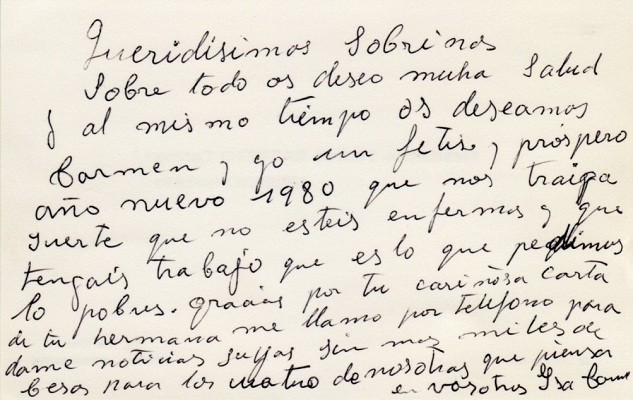 Queridísimos Sobrinos
Sobre todo os deseo muha Salud
y al mismo tiempo os deseamos
Carmen y yo un felis y próspero
año nuevo 1980 que nos traiga
suerte que no esteis enfermos y que
tengais trabajo que es lo que pedimos
lo pobres. gracias por tu cariñosa carta
de tu hermana me llamo por teléfono para
darme noticias suyas sin mas miles de
besos para los cuatro de nosotras que piensa
en vosotros Isa